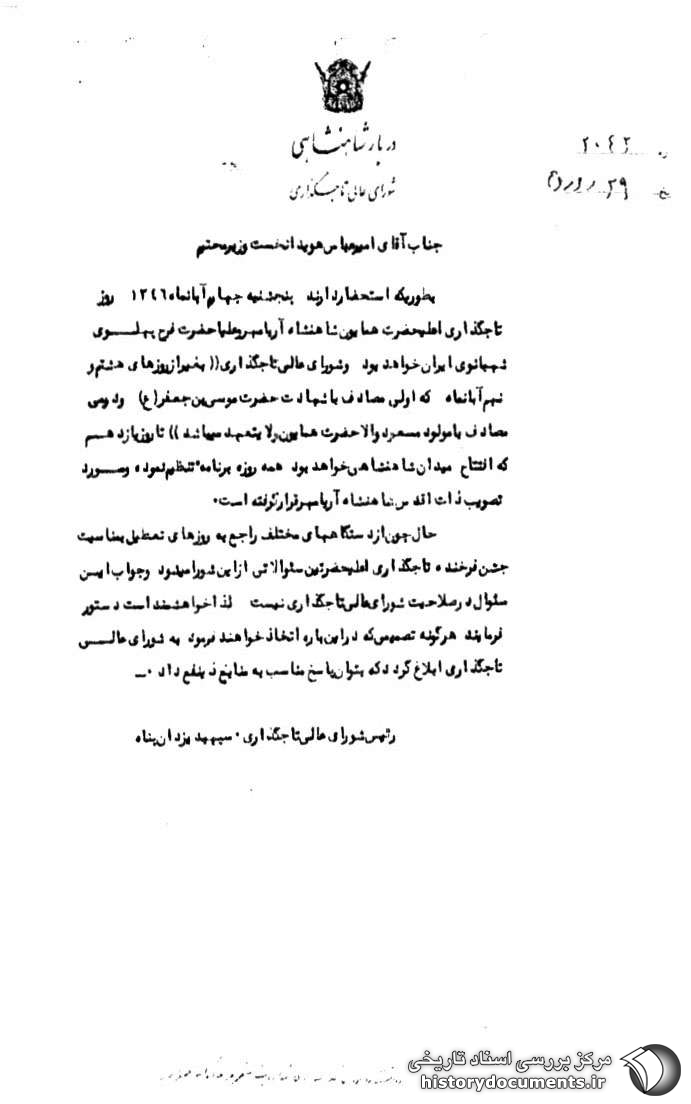 دربار شاهنشاهی
شورای عالی تاجگذاری
۲۰۴۲
۲۹
جناب آقای امیرعباس هویدا نخست وزیر محترم
بطوریکه استحضار دارند پنجشنبه چهارم آبانماه ۱۳۴۶ روز
تاجگذاری اعلیحضرت همایون شاهنشاه آریامهر و علیاحضرت فرح پهلوی
شهبانوی ایران خواهد بود و شورای عالی تاجگذاری (( بغیر از روزهای هشتم و
نهم آبانماه که اولی مصادف با شهادت حضرت موسی بن جعفر (ع) و دومی
مصادف با مولود مسعود والاحضرت همایون ولایتعهد میباشد )) تا روز یازدهم
که افتتاح میدان شاهنشاهی خواهد بود همه روزه برنامه تنظیم نموده و مورد
تصویب ذات اقدس شاهنشاه آریامهر قرار گرفته است.
حال چون از دستگاههای مختلف راجع به روزهای تعطیل بمناسبت
جشن فرخنده تاجگذاری اعلیحضرتین سئوالاتی از این شورا میشود و جواب این
سئوال در صلاحیت شورای عالی تاجگذاری نیست لذا خواهشمند است دستور
فرمایند هرگونه تصمیمی که در این باره اتخاذ خواهند فرمود به شورای عالی
تاجگذاری ابلاغ گردد که بتوان پاسخ مناسب به منابع ذینفع داد .ـ
رئیس شورای عالی تاجگذاری . سپهبد یزدان پناه
مرکز بررسی اسناد تاریخی
historydocuments.ir